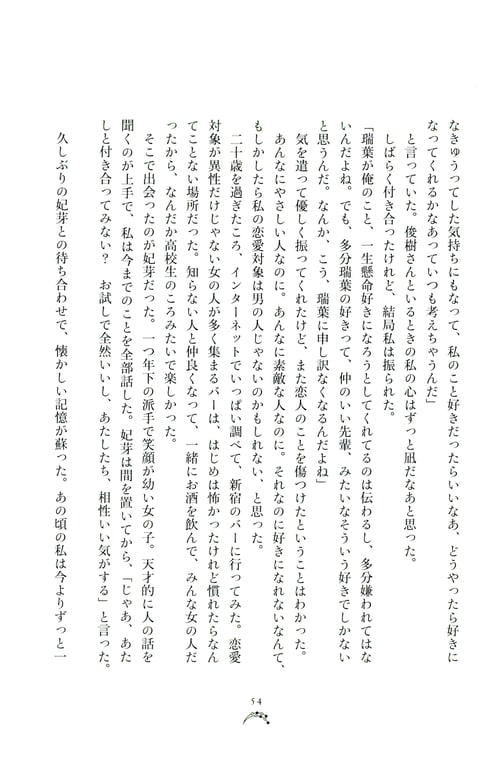 なきゅうってした気持ちにもなって、私のこと好きだったらいいなあ、どうやったら好きに
なってくれるかなあっていつも考えちゃうんだ」
と言っていた。俊樹さんといるときの私の心はずっと凪だなあと思った。
しばらく付き合ったけれど、結局私は振られた。
「瑞葉が俺のこと、一生懸命好きになろうとしてくれてるのは伝わるし、多分嫌われてはな
いんだよね。でも、多分瑞葉の好きって、仲のいい先輩、みたいなそういう好きでしかない
と思うんだ。なんか、こう、瑞葉に申し訳なくなるんだよね」
気を遣って優しく振ってくれたけど、また恋人のことを傷つけたということはわかった。
あんなにやさしい人なのに。あんなに素敵な人なのに。それなのに好きになれないなんて、
もしかしたら私の恋愛対象は男の人じゃないのかもしれない、と思った。
二十歳を過ぎたころ、インターネットでいっぱい調べて、新宿のバーに行ってみた。恋愛
対象が異性だけじゃない女の人が多く集まるバーは、はじめは怖かったけれど慣れたらなん
てことない場所だった。知らない人と仲良くなって、一緒にお酒を飲んで、みんな女の人だ
ったから、なんだか高校生のころみたいで楽しかった。
そこで出会ったのが妃芽だった。一つ年下の派手で笑顔が幼い女の子。天才的に人の話を
聞くのが上手で、私は今までのことを全部話した。妃芽は間を置いてから、「じゃあ、あた
しと付き合ってみない? お試しで全然いいし、あたしたち、相性いい気がする」と言った。
久しぶりの妃芽との待ち合わせで、懐かしい記憶が蘇った。あの頃の私は今よりずっと一
54